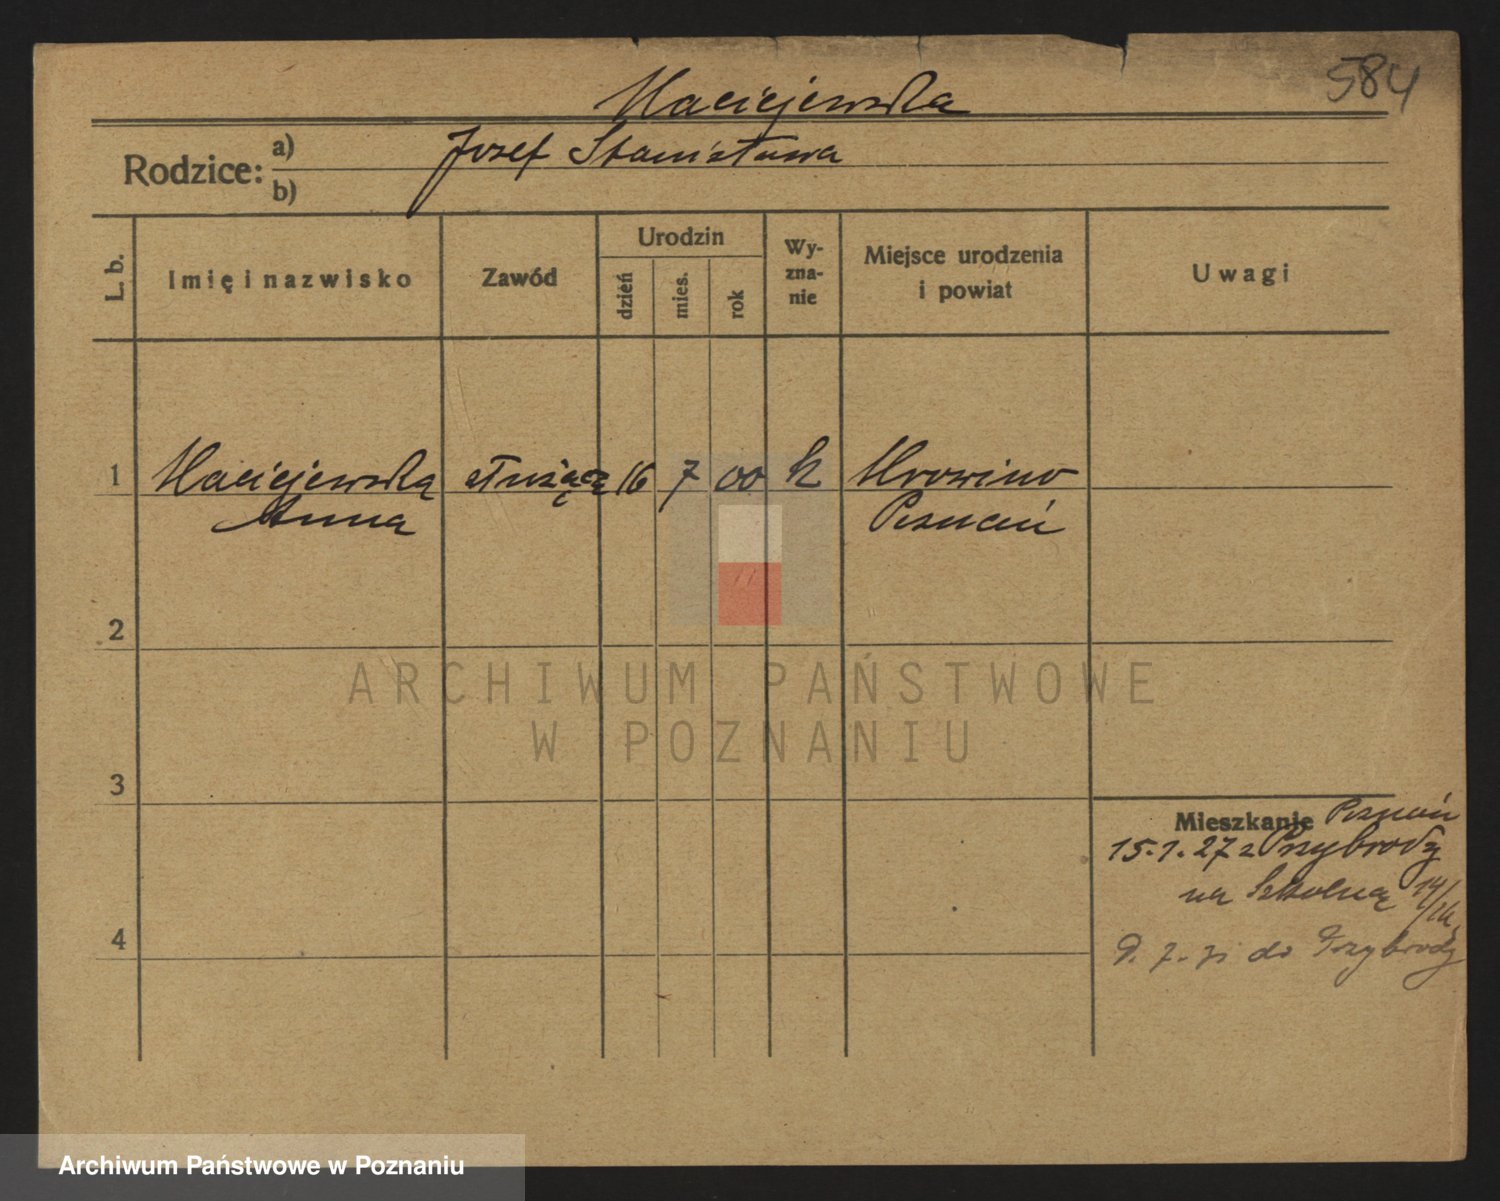 584
Maciejewska
Rodzice: a) Jozef Stanisława
b)
L. b. Imię i nazwisko Zawód Urodzin dzień mies. rok Wy-zna-nie Miejsce urodzenia i powiat Uwagi
1 Maciejewska służąca 16 7 00 k Mrowino
Anna Poznań
2
ARCHIWUM PAŃSTWOWE
W POZNANIU
3
Mieszkanie Poznań
15.1.27 z Przybrody
na Szkolną 14/
4
do Przybrody
Archiwum Państwowe w Poznaniu